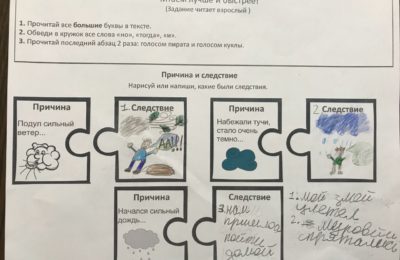 (Задание читает взрослый )
1. Прочитай все большие буквы в тексте.
2. Обведи в кружок все слова «но», «тогда», «и».
3. Прочитай последний абзац 2 раза: голосом пирата и голосом куклы.
Причина и следствие
Нарисуй или напиши, какие были следствия.
Причина
Подул сильный
ветер...
1. Следствие
ААА!!!
Причина
Набежали тучи,
стало очень
темно...
2. Следствие
Причина
Начался сильный
дождь...
Следствие
3. нам
пришлось
пойти
домой
1. мой змей
улетел
2. Муровей
спрятались